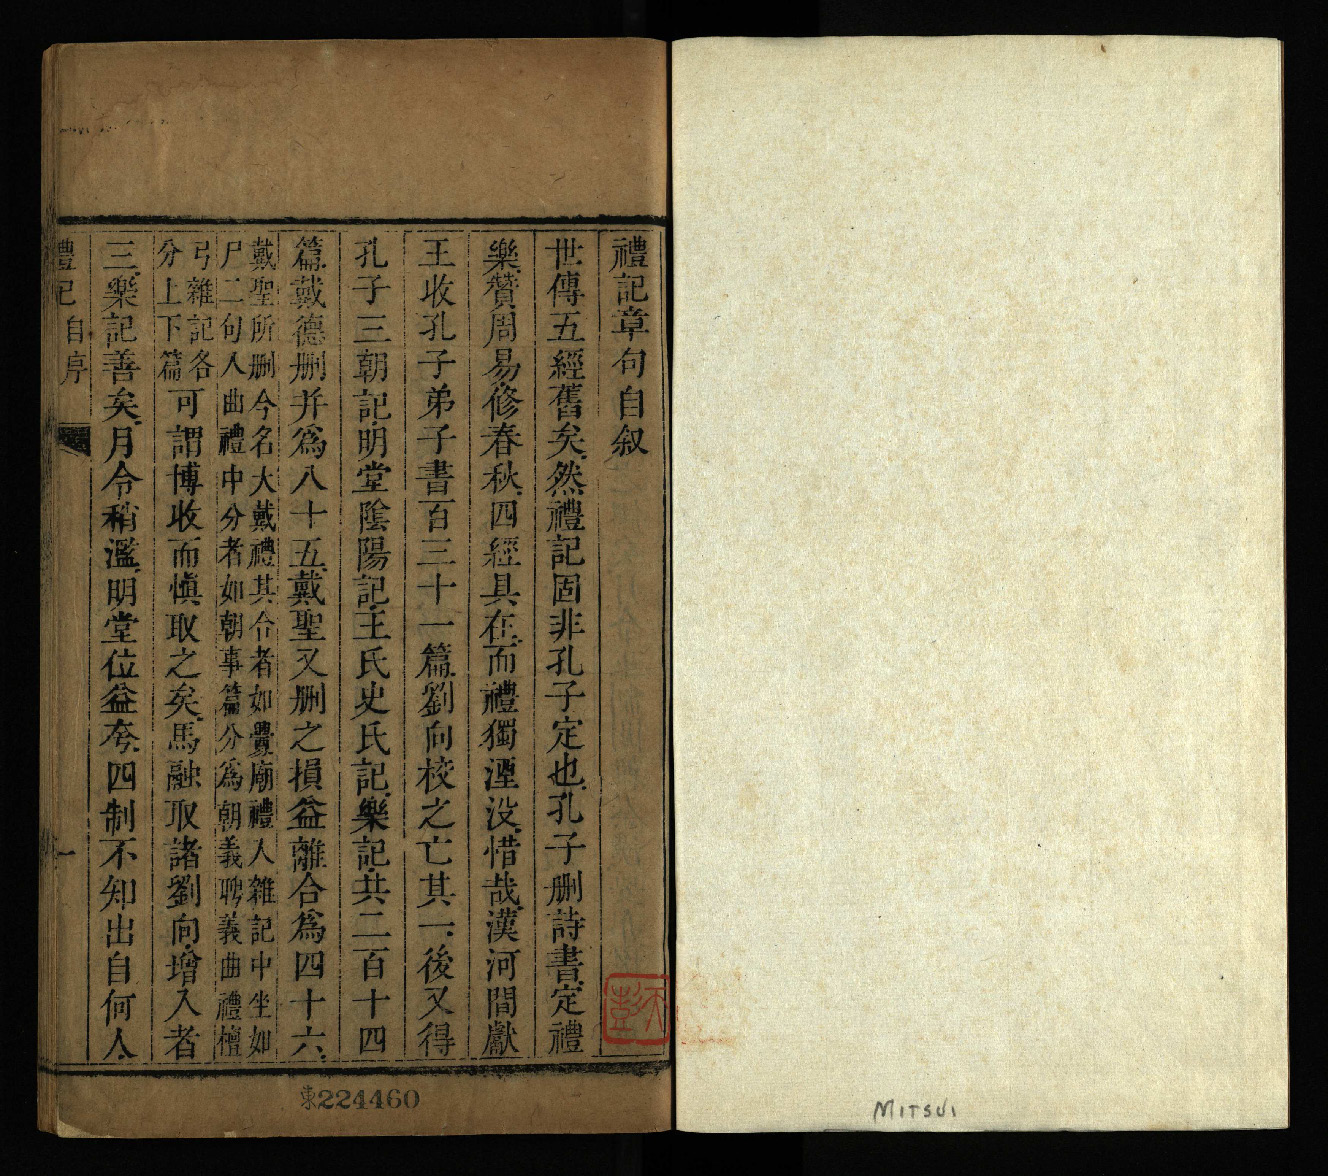 禮記章句自叙
世傳五經舊矣然禮記固非孔子定也孔子删詩書定禮
樂贊周易修春秋四經具在而禮獨湮没惜哉漢河間獻
王收孔子弟子書百三十一篇劉向校之亡其一後又得
孔子三朝記明堂陰陽記王氏史氏記樂記共二百十四
篇戴德删并為八十五戴聖又删之損益離合為四十六
戴聖所删今名大戴禮其合者如釁廟禮入雜記中坐如
尸二句入曲禮中分者如朝事篇分為朝義聘義曲禮檀
弓雜記各
分上下篇
可謂博收而慎取之矣馬融取諸劉向增入者
三樂記善矣月令稍濫明堂位益夸四制不知出自何人
禮記 自序
一
東224460
MITSUI